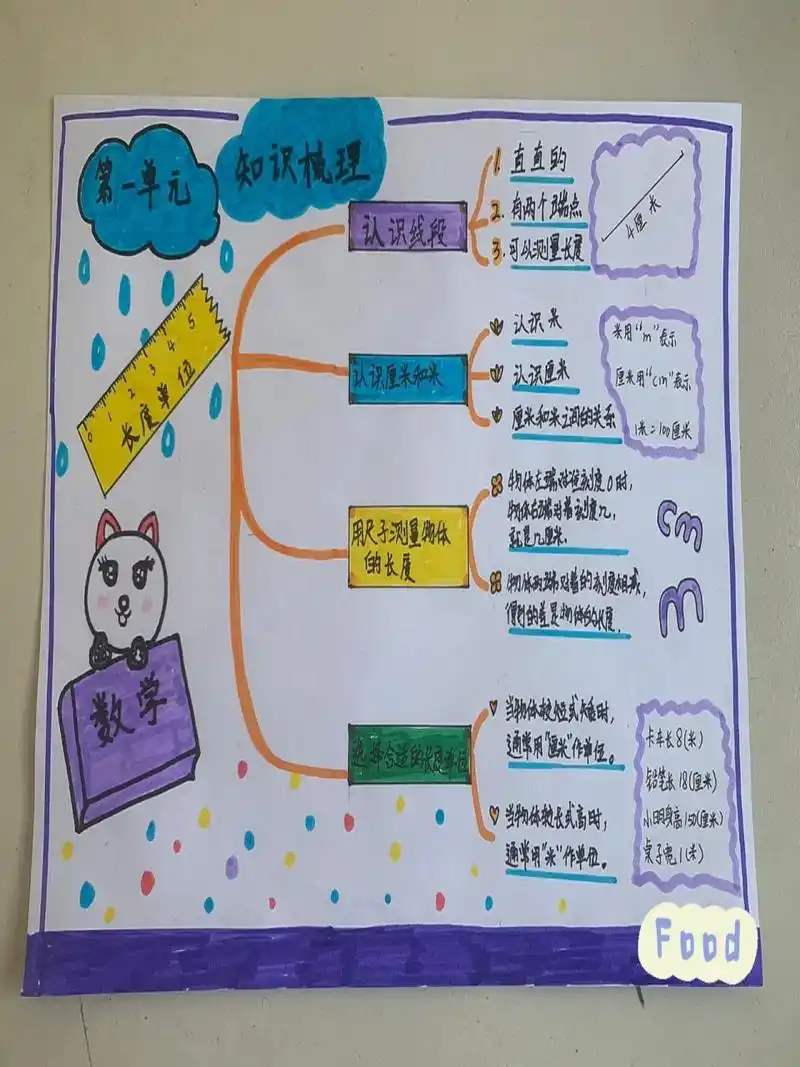 第一单元
知识梳理
认识线段
1. 直直的
2. 有两个端点
3. 可以测量长度
4厘米
0 1 2 3 4 5
长度单位
认识厘米和米
认识米
认识厘米
厘米和米之间的关系
米用“m”表示
厘米用“cm”表示
1米=100厘米
用尺子测量物体
的长度
物体左端对准刻度0时,
物体右端对着刻度几,
就是几厘米.
物体两端对着的刻度相减,
得到的差是物体的长度.
cm
m
数学
选择合适的长度单位
当物体较短或矮时,
通常用“厘米”作单位。
当物体较长或高时,
通常用“米”作单位.
卡车长8(米)
铅笔长18(厘米)
小明身高150(厘米)
桌子宽1(米)
Food